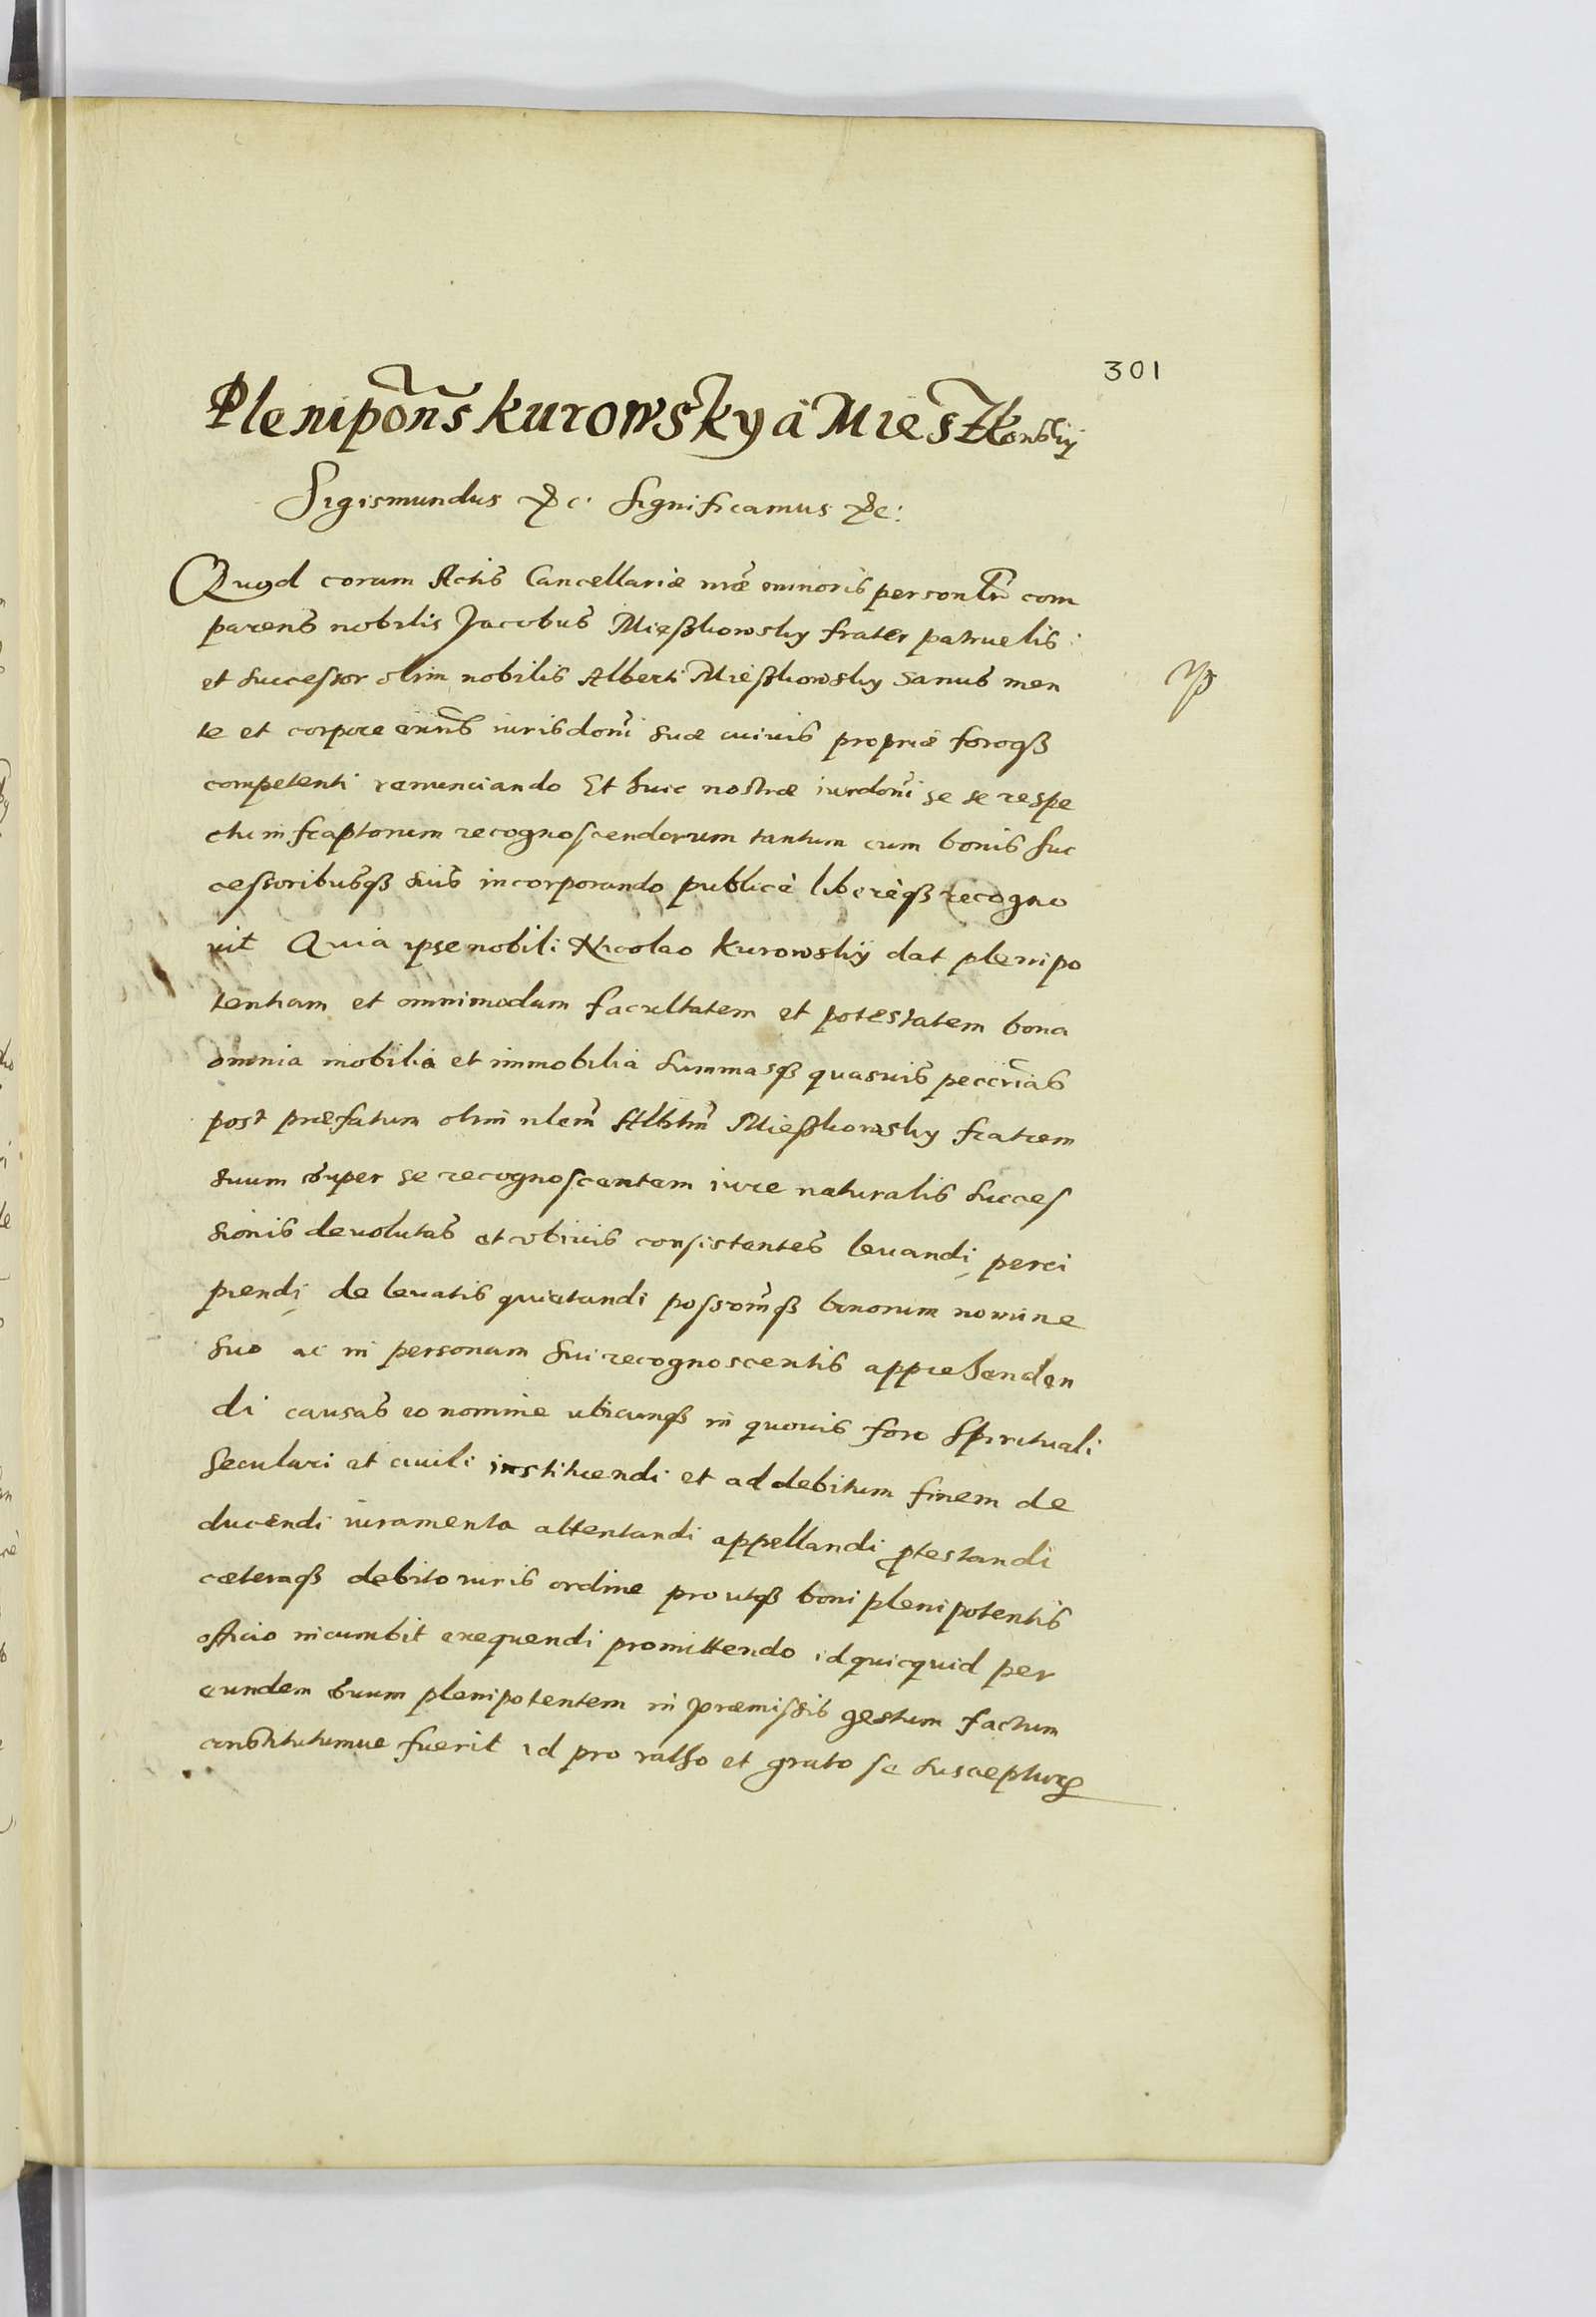 301
Plenipõns Kurowsky à Mieszkowskÿ
Sigismundus &c. Significamus &c:
Quod coram Actis Cancellariæ nr̃æ minoris personlr̃ com
parens nobilis Jacobus Mieszkowsky frater patruelis
et successor olim nobilis Alberti Mieszkowsky sanus men
te et corpore exñs iurisdoñi suæ cuiuis propriæ foroqȝ
competenti renunciando Et huic nostræ iurdoñi se se respe
ctu infraptorum recognoscendorum tantum cum bonis suc
cessoribusqȝ suis incorporando publicè liberèqȝ recogno
uit Quia ipse nobili Nicolao Kurowskÿ dat plenipo
tentiam et omnimodam facultatem et potestatem bona
omnia mobilia et immobilia summasqȝ quasuis peccrias
post præfatum olim nlem̃ Albtm̃ Mieszkowsky fratrem
suum super se recognoscentem iure naturalis succes
sionis deuolutas et vbiuis consistentes leuandi, perci
piendi, de leuatis quietandi possiom̃qȝ bonorum nomine
suo ac in personam sui recognoscentis apprehenden
di causas eo nomine ubicunqȝ in quouis foro Spirituali
Seculari et ciuili instituendi et ad debitum finem de
ducendi iuramenta attentandi appellandi ꝓtestandi
cæteraqȝ debito iuris ordine pro utqȝ boni plenipotentis
officio incumbit exequendi promittendo id quicquid per
eundem suum plenipotentem in præmissis gestum factum
constitutumue fuerit id pro ratho et grato se susceptur